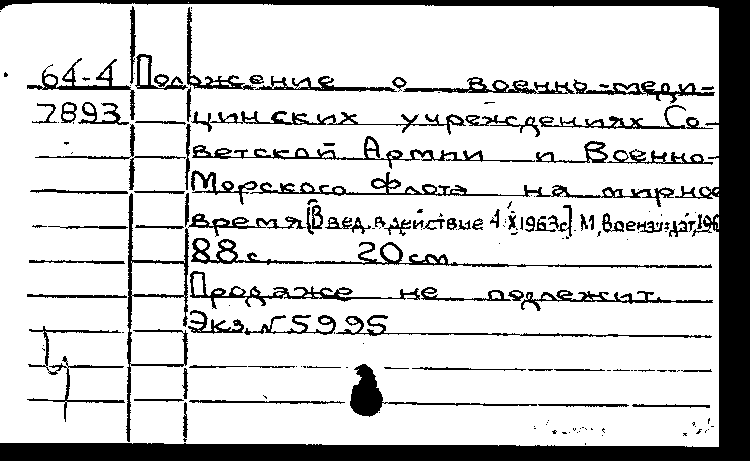 64-4 Положение о военно-меди=
7893 цинских учреждениях Со-
ветской Армии и Военно-
Морского Флота на мирное
время [Введ. в действие 4 X 1963г.] М, Воениздат, 196
88 с. 20 см.
Продаже не подлежит.
Экз. № 5995